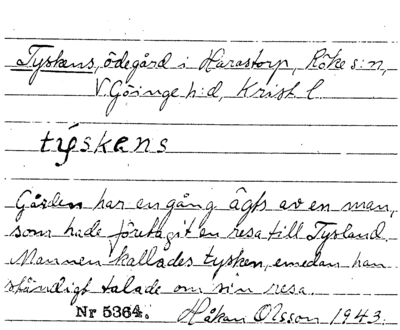 Tyskens, ödegård i Harastorp, Röke s:n,
V. Göinge h:d, Krist. l.
týskens
Gården har en gång ägts av en man,
som hade företagit en resa till Tysland.
Mannen kallades tysken, emedan han
ständigt talade om sin resa.
Nr 5364. Håkan Olsson 1943.